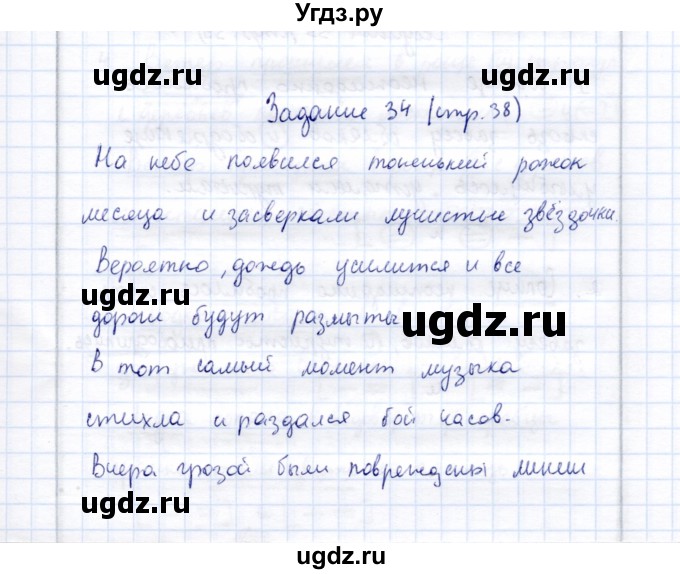 Угдз.ру
ugdz.ru ugdz.ru
Задание 34 (стр. 38)
На небе появился тоненький рожок
месяца и засверкали лучистые звёздочки.
ugdz.ru ugdz.ru
Вероятно, дождь усилится и все
дороги будут размыты
ugdz.ru
В тот самый момент музыка
стихла и раздался бой часов.
Вчера грозой были повреждены линии
ugdz.ru ugdz.ru
ugdz.ru